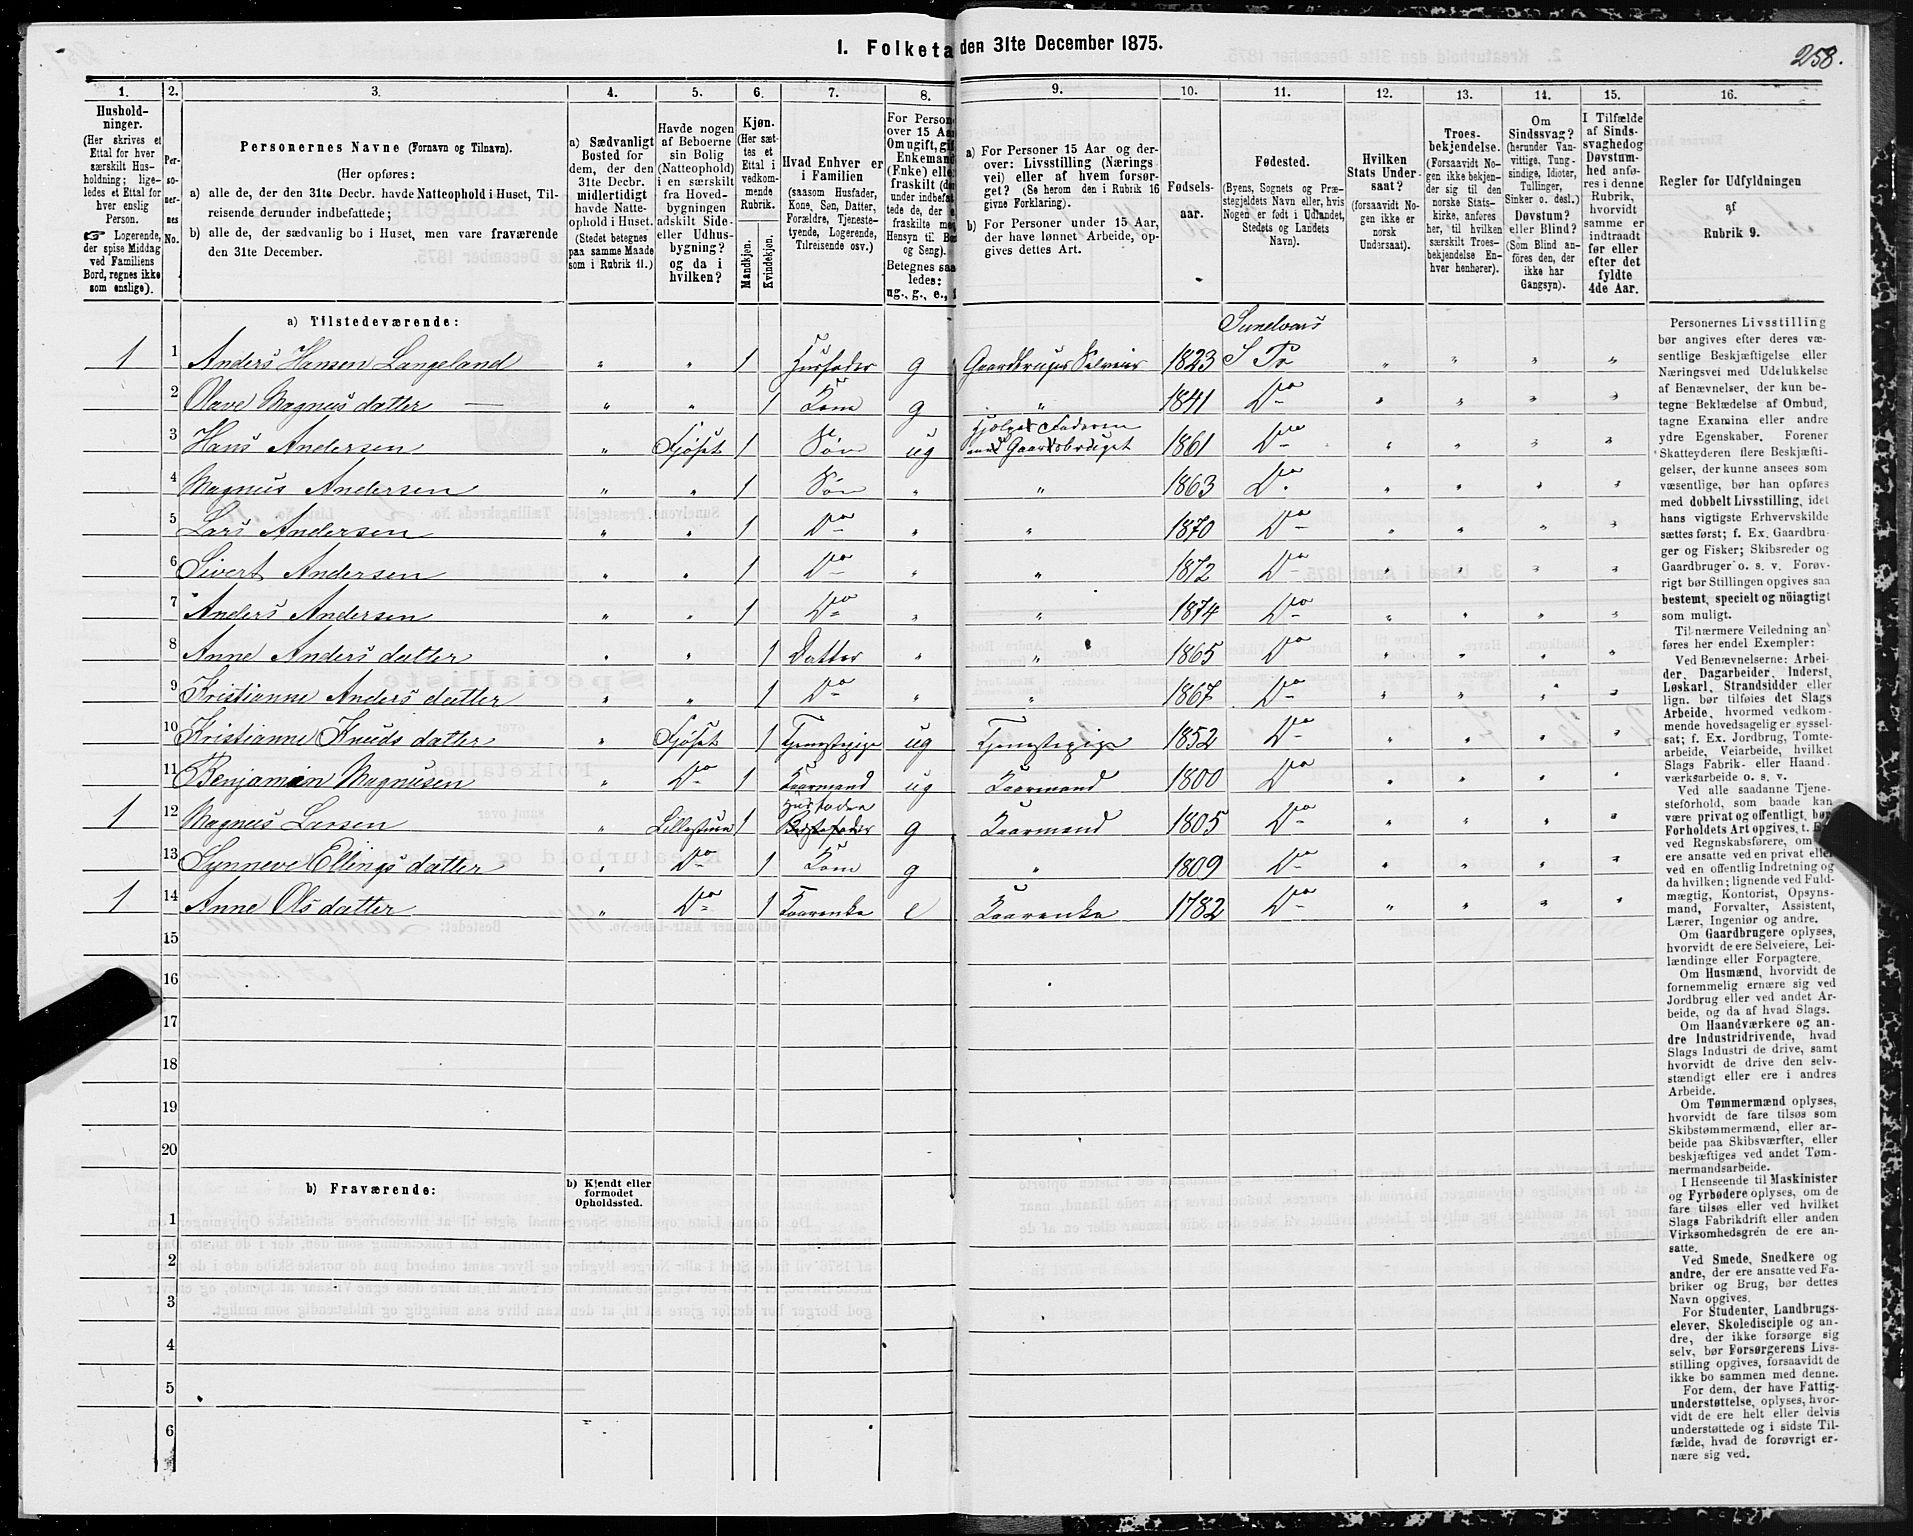 258.
1. Folketa den 31te December 1875.
1. 2. 3. 4. 5. 6. 7. 8. 9. 10. 11. 12. 13. 14. 15. 16.
Hushold-
ninger.
(Her skrives et
Ettal for hver
særskilt Hus-
holdning; lige-
ledes et Ettal for
hver enslig
Person.
☞ Logerende,
der spise Middag
ved Familiens
Bord, regnes ikke
som enslige).
Per-
so-
ner-
nes
No.
Personernes Navne (Fornavn og Tilnavn).
(Her opføres:
a) alle de, der den 31te Decbr. havde Natteophold i Huset, Til-
reisende derunder indbefattede;
b) alle de, der sædvanlig bo i Huset, men vare fraværende
den 31te December.
a) Sædvanligt
Bosted for
dem, der den
31te Decbr.
midlertidigt
havde Natte-
ophold i Huset.
(Stedet betegnes
paa samme Maade
som i Rubrik 11.)
Havde nogen
af Beboerne
sin Bolig
(Natteophold)
i en særskilt
fra Hoved-
bygningen
adskilt Side-
eller Udhus-
bygning?
og da i
hvilken?
Kjøn.
(Her sæt-
tes et
Ettal i
vedkom-
mende
Rubrik.
Mandkjøn.
Kvindekjøn.
Hvad Enhver er
i Familien
(saasom Husfader,
Kone, Søn, Datter,
Forældre, Tjeneste-
tyende, Logerende,
Tilreisende osv.)
For Person
over 15 Aar
Om ugift, gif
Enkemand
(Enke) elle
fraskilt (de
under indbefat-
tede de, der e
fraskilte me
Hensyn til. Bo
og Seng).
Betegnes saa
ledes:
ug., g., e., f
a) For Personer 15 Aar og der-
over: Livsstilling (Nærings
vei) eller af hvem forsør-
get? (Se herom den i Rubrik 16
givne Forklaring).
b) For Personer under 15 Aar,
der have lønnet Arbeide, op-
gives dettes Art.
Fødsels-
aar.
Fødested.
(Byens, Sognets og Præ-
stegjeldets Navn eller, hvis
Nogen er født i Udlandet,
Stedets og Landets
Navn).
Hvilken
Stats Under-
saat?
(forsaavidt No-
gen ikke er
norsk
Undersaat).
Troes-
bekjendelse.
(Forsaavidt No-
gen ikke bekjen-
der sig til den
norske Stats-
kirke, anføres
her, til hvilken
særskilt Troes-
bekjendelse En-
hver henhører).
Om
Sindssvag?
(herunder Van-
vittige, Tung-
sindige, Idioter,
Tullinger,
Sinker o. desl.)
Døvstum?
eller Blind?
(Som Blind an-
føres den, der
ikke har
Gangsyn).
I Tilfælde
af Sinds-
svaghed og
Døvstum-
hed anfø-
res i denne
Rubrik,
hvorvidt
samme er
indtraadt
før eller
efter det
fyldte
4de Aar.
Regler for Udfyldningen
af
Rubrik 9.
a) Tilstedeværende:
1 1 Anders Hansen Langeland " " 1 Husfader g Gaardbruger Selveier 1823 Sunelvens S Pr " " " "
2 Olave Magnus datter " " 1 Kone g " 1841 Do " " " "
3 Hans Andersen " Fjøset 1 Søn ug Hjelper Faderen med Gaardsbruget 1861 Do " " " "
4 Magnus Andersen " " 1 Søn " " 1863 Do " " " "
5 Lars Andersen " " 1 Do " " 1870 Do " " " "
6 Sivert Andersen " " 1 Do " " 1872 Do " " " "
7 Anders Andersen " " 1 Do " " 1874 Do " " " "
8 Anne Anders datter " " 1 Datter " " 1865 Do " " " "
9 Kristianne Anders datter " " 1 Do " " 1867 Do " " " "
10 Kristianne Knuds datter " Fjøset 1 Tjenestepige ug Tjenestepige 1852 Do " " " "
11 Benjamin Magnusen " Do 1 Kaarmand ug Kaarmand 1800 Do " " " "
1 12 Magnus Larsen " Lillestuen 1 Husfader Bestefader g Kaarmand 1805 Do " " " "
13 Synneve Ellings datter " Do 1 Kone g " 1809 Do " " " "
1 14 Anne Ols datter " Do 1 Kaarenke e Kaarenke 1782 Do " " " "
15
16
17
18
19
20
b) Fraværende:
b) Kjendt eller
formodet
Opholdssted.
1
2
3
4
5
6
Personernes Livsstilling
bør angives efter deres væ-
sentlige Beskjæftigelse eller
Næringsvei med Udelukkelse
af Benævnelser, der kun be-
tegne Beklædelse af Ombud,
tagne Examina eller andre
ydre Egenskaber. Forener
Skatteyderen flere Beskjæfti-
gelser, der kunne ansees som
væsentlige, bør han opføres
med dobbelt Livsstilling, idet
hans vigtigste Erhvervskilde
sættes først; f. Ex. Gaardbru-
ger og Fisker; Skibsreder og
Gaardbruger o. s. v. Forøv-
rigt bør Stillingen opgives saa
bestemt, specielt og nöiagtigt
som muligt.
Til nærmere Veiledning an-
føres her endel Exempler:
Ved Benævnelserne: Arbei-
der, Dagarbeider, Inderst,
Løskarl, Strandsidder eller
lign. bør tilføies det Slags
Arbeide, hvormed vedkom-
mende hovedsagelig er syssel-
sat; f. Ex. Jordbrug, Tomte-
arbeide, Veiarbeide, hvilket
Slags Fabrik- eller Haand-
værksarbeide o. s. v.
Ved alle saadanne Tjene-
steforhold, som baade kan
være privat og offentligt, bør
Forholdets Art opgives, t. E
ved Regnskabsførere, om
ere ansatte ved en privat eller
ved en offentlig Indretning og
da hvilken; lignende ved Fuld-
mægtig, Kontorist, Opsyns-
mand, Forvalter, Assistent,
Lærer, Ingeniør og andre.
Om Gaardbrugere oplyses,
hvorvidt de ere Selveiere, Lei-
lændinge eller Forpagtere.
Om Husmænd, hvorvidt de
fornemmelig ernære sig ved
Jordbrug eller ved andet Ar-
beide, og da af hvad Slags.
Om Haandværkere og an-
dre Industridrivende, hvad
Slags Industri de drive, samt
hvorvidt de drive den selv-
stændigt eller ere i andres
Arbeide.
Om Tømmermænd oplyses,
hvorvidt de fare tilsøs som
Skibstømmermænd, eller ar-
beide paa Skibsværfter, eller
beskjæftiges ved andet Tøm-
mermandsarbeide.
I Henseende til Maskinister
og Fyrbødere oplyses, om de
fare tilsøs eller ved hvilket
Slags Fabrikdrift eller anden
Virksomhedsgrén de ere an-
satte.
Ved Smede, Snedkere og
andre, der ere ansatte ved Fa-
briker og Brug, bør dettes
Navn opgives.
For Studenter, Landbrugs-
elever, Skoledisciple og an-
dre, der ikke forsørge sig
selv, bør Forsørgerens Livs-
stilling opgives, forsaavidt de
ikke bo sammen med denne.
For dem, der have Fattig-
understøttelse, oplyses, hvor-
vidt de ere helt eller delvis
understøttede og i sidste Til-
fælde, hvad de forøvrigt er-
nære sig ved.